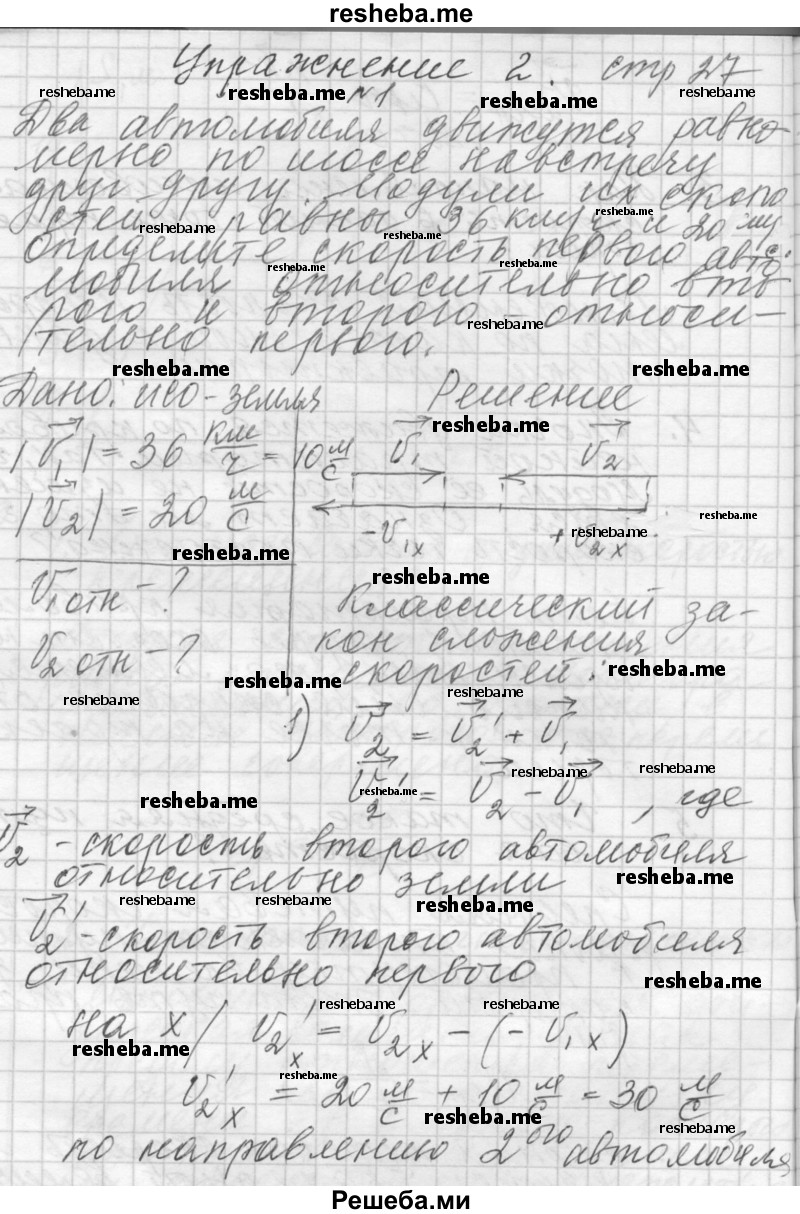 resheba.me
Упражнение 2. стр 27
№1
Два автомобиля движутся равно-
мерно по шоссе навстречу
друг другу. Модули их скоро
стей равны 36 км/ч и 20 м/с
Определите скорость первого авто
мобиля относительно вто
рого и второго - относи-
тельно первого.
Дано: ИСО - земля
Решение
|V₁| = 36 км/ч = 10 м/с
|V₂| = 20 м/с
V₁ V₂
-V₁ₓ +V₂ₓ
V₁ отн - ?
V₂ отн - ?
Классический за-
кон сложения
скоростей:
1) V₂ = V₂' + V₁
V₂' = V₂ - V₁ , где
V₂ - скорость второго автомобиля
относительно земли
V₂' - скорость второго автомобиля
относительно первого
на x / V₂'ₓ = V₂ₓ - (-V₁ₓ)
V₂'ₓ = 20 м/с + 10 м/с = 30 м/с
по направлению 2ого автомобиля
Решеба.ми